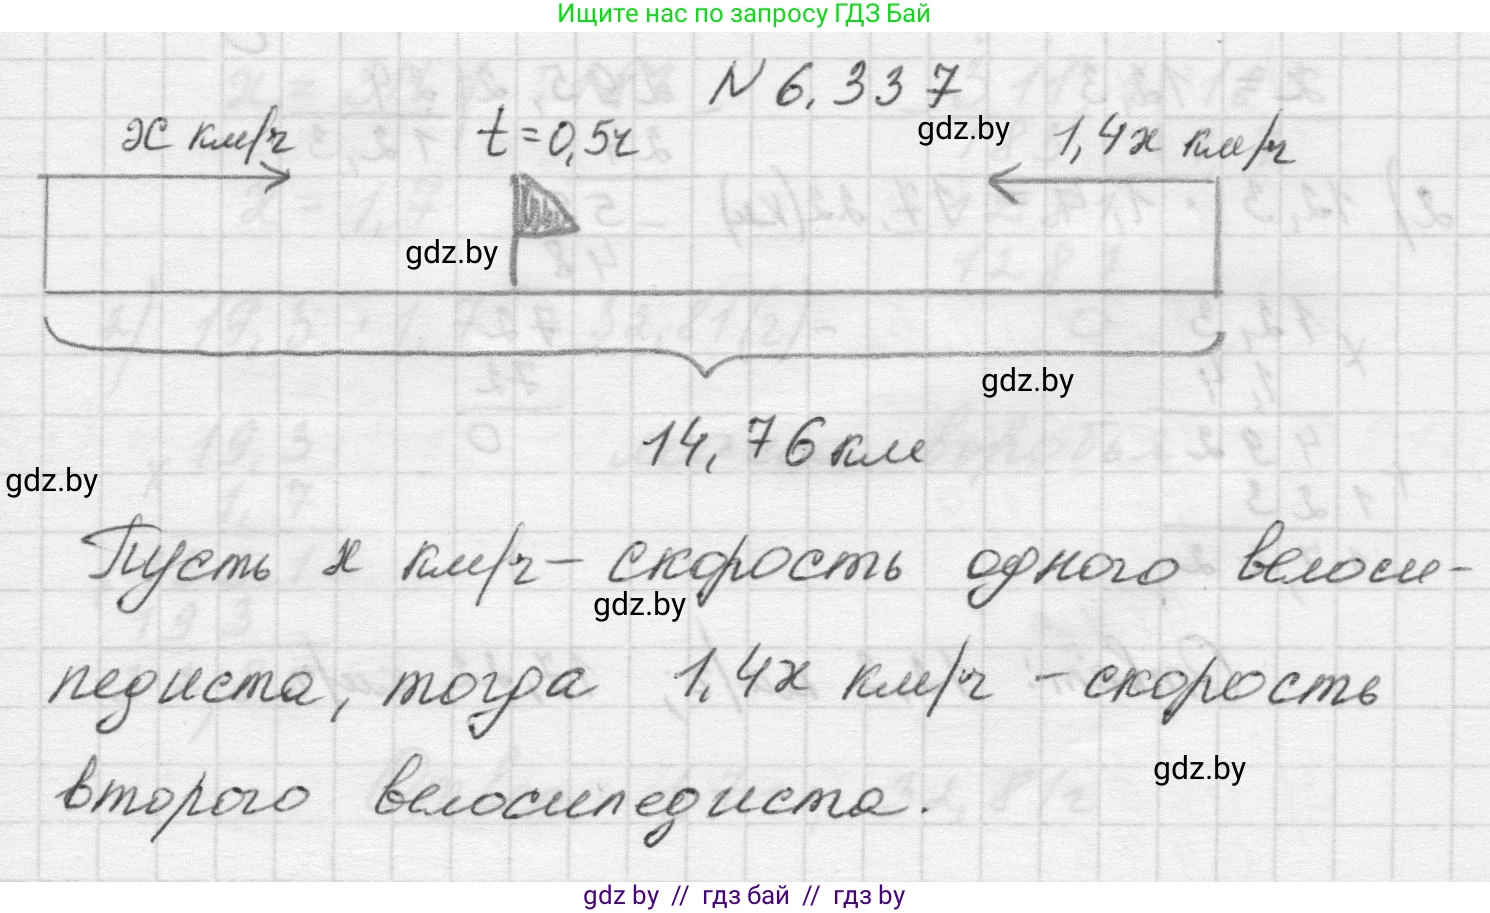 Ищите нас по запросу ГДЗ Бай
N 6.337
x км/ч
t=0,5ч
gdz.by
1,4x км/ч
gdz.by
gdz.by
14,76 км
gdz.by
Пусть x км/ч – скорость одного велоси-
gdz.by
педиста, тогда 1,4x км/ч – скорость
gdz.by
второго велосипедиста.
gdz by // гдз бай // гдз by